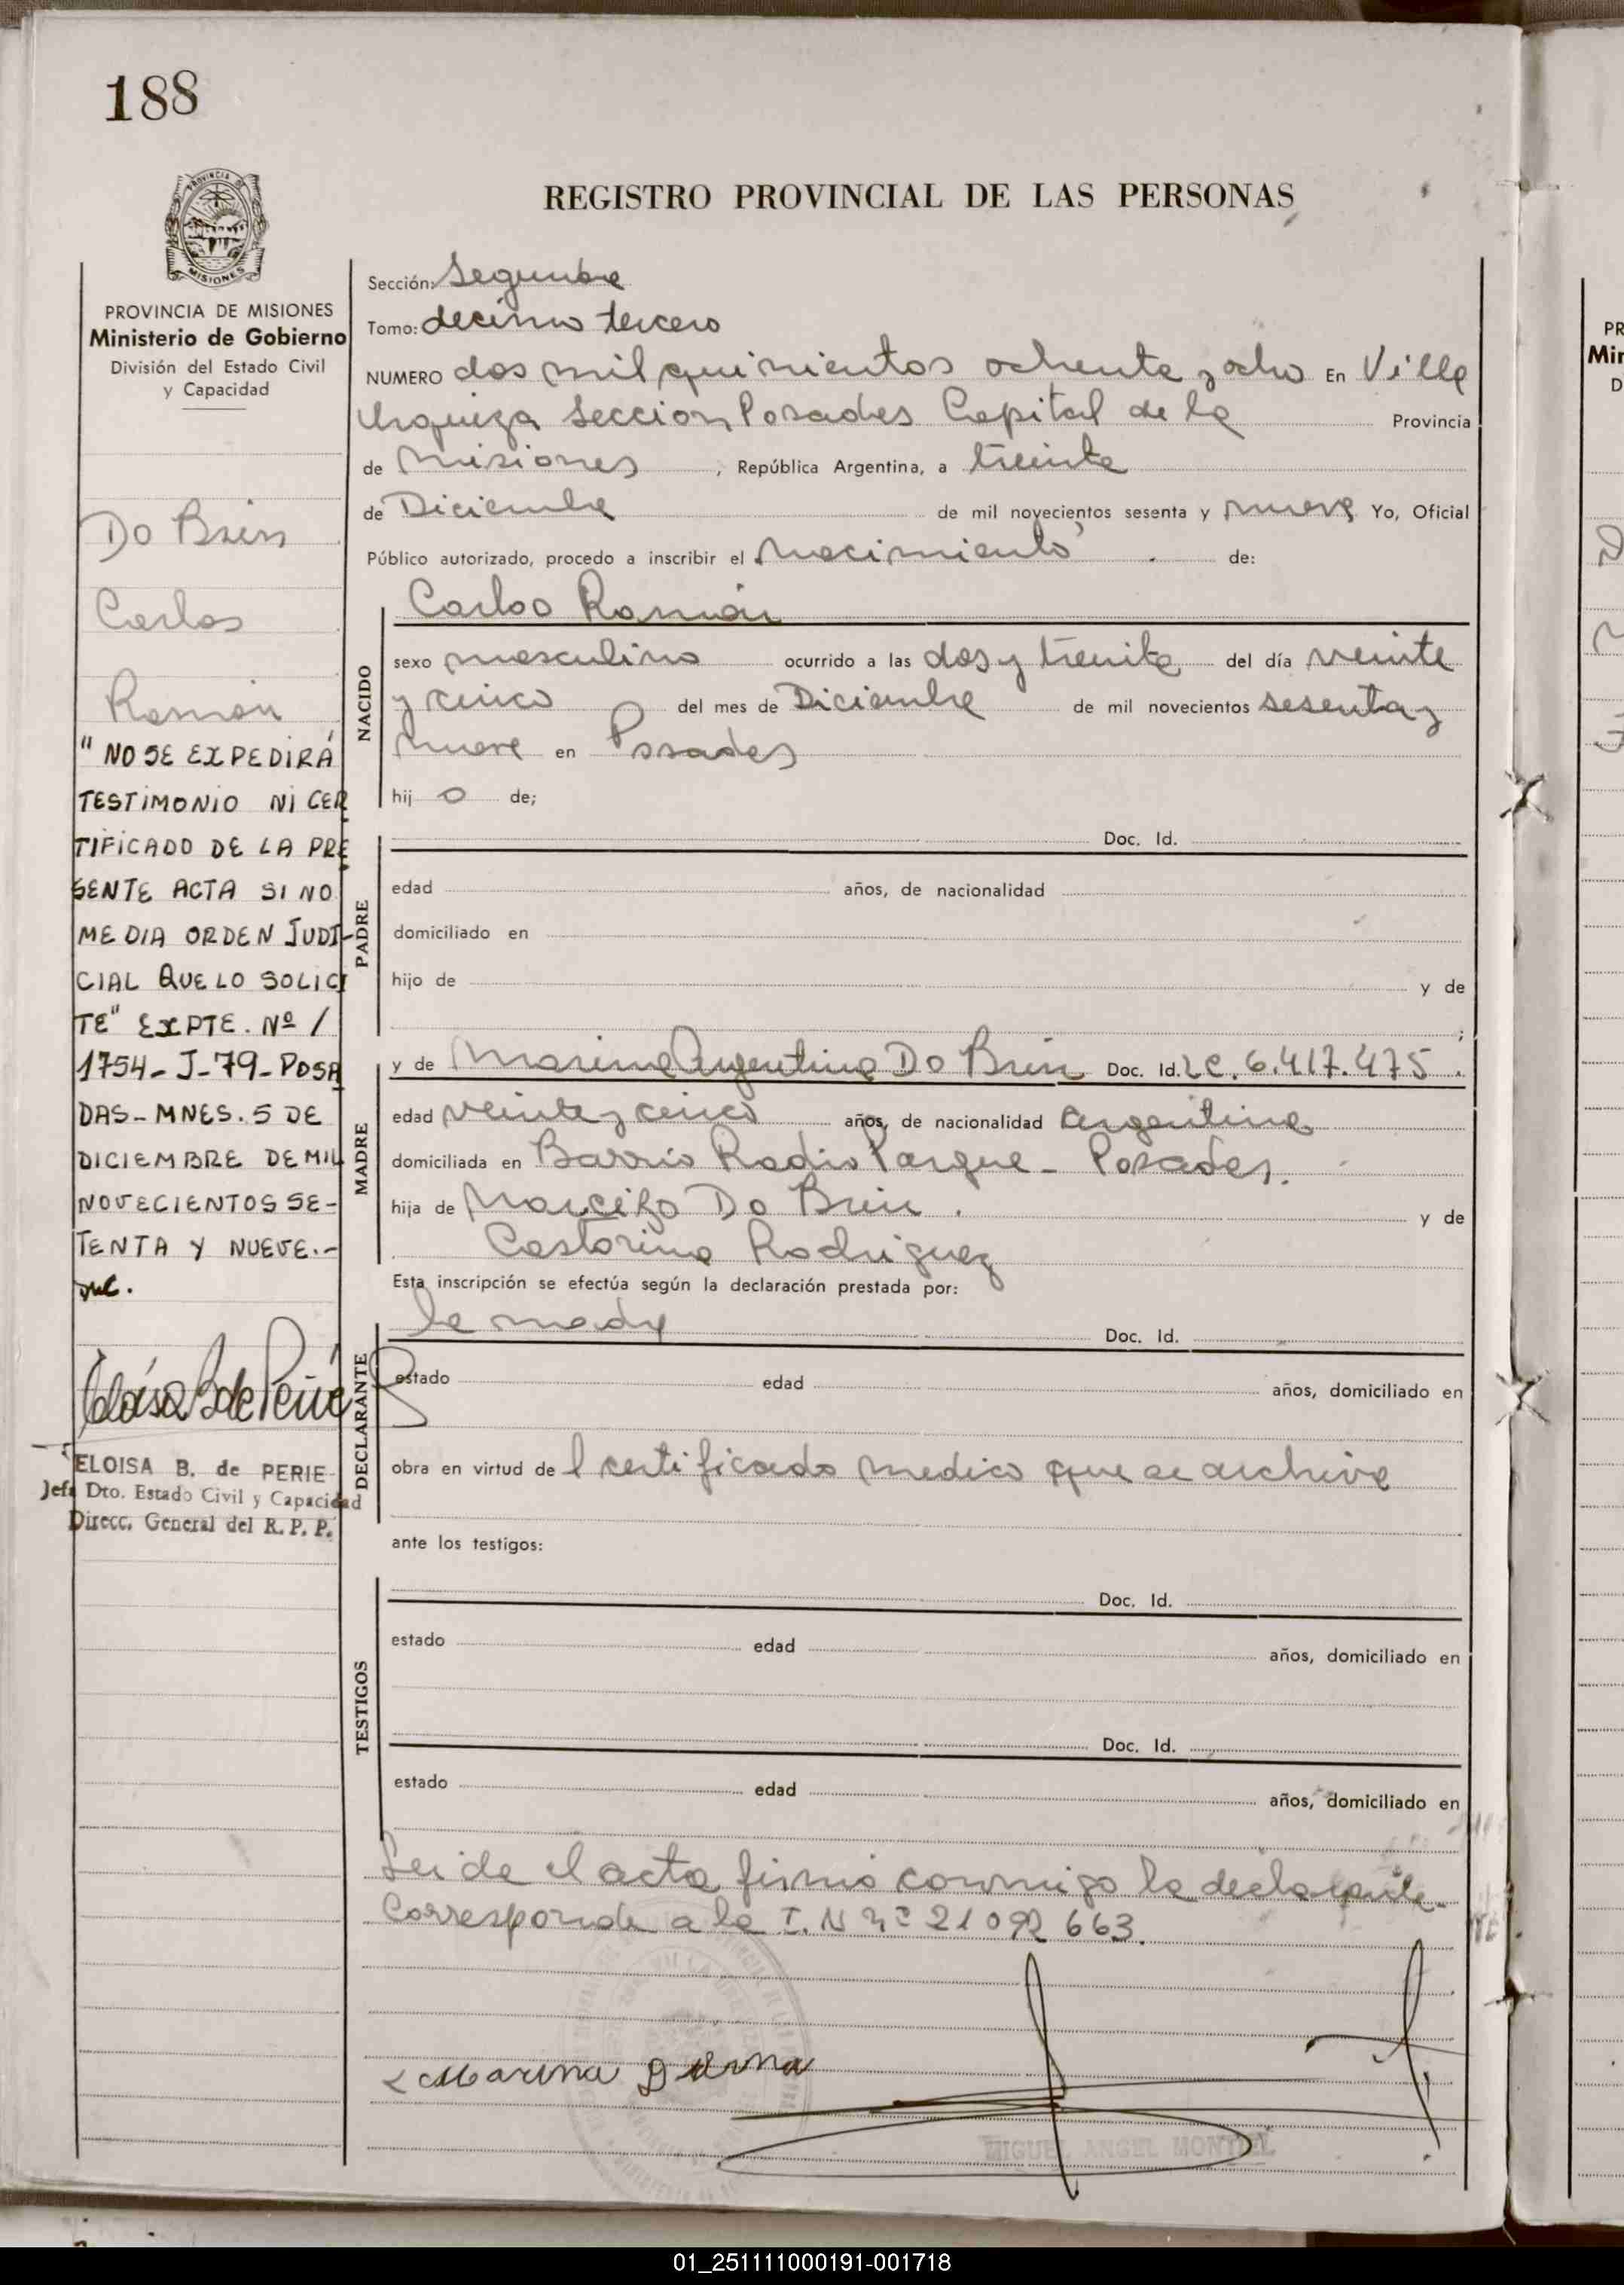 188
REGISTRO PROVINCIAL DE LAS PERSONAS
PROVINCIA DE MISIONES
Ministerio de Gobierno
División del Estado Civil
y Capacidad
Do Brin
Carlos
Ramón
"NO SE EXPEDIRÁ
TESTIMONIO NI CER
TIFICADO DE LA PRE
SENTE ACTA SI NO
MEDIA ORDEN JUDI-
CIAL QUE LO SOLICI
TE" EXPTE. Nº /
1754-J-79-POSA
DAS-MNES. 5 DE
DICIEMBRE DE MIL
NOVECIENTOS SE-
TENTA Y NUEVE.-
ELOISA B. de PERIE
Jefe Dto. Estado Civil y Capacidad
Direcc. General del R. P. P.
Sección: Segunda
Tomo: decimo tercero
NUMERO dos mil quinientos ochenta y ocho En Villa
Urquiza Seccion Posadas Capital de la Provincia
de Misiones, República Argentina, a treinta
de Diciembre de mil novecientos sesenta y nueve Yo, Oficial
Público autorizado, procedo a inscribir el nacimiento de:
Carlos Ramón
NACIDO
sexo masculino ocurrido a las dos y treinta del día veinte
y cinco del mes de Diciembre de mil novecientos sesenta y
nueve en Posadas
hij o de;
PADRE
Doc. Id.
edad años, de nacionalidad
domiciliado en
hijo de y de
;
MADRE
y de Marina Argentina Do Brin Doc. Id. LC. 6.417.475.
edad veinte y cinco años, de nacionalidad argentina
domiciliada en Barrio Radio Parque - Posadas.
hija de Do Brin. y de
Castorina Rodriguez
Esta inscripción se efectúa según la declaración prestada por:
DECLARANTE
la madre Doc. Id.
estado edad años, domiciliado en
obra en virtud de l certificado medico que se archiva
ante los testigos:
TESTIGOS
Doc. Id.
estado edad años, domiciliado en
Doc. Id.
estado edad años, domiciliado en
Leida el acta firmó conmigo la declarante-
Corresponde a la I. N nº 21 092 663.
Marina
MIGUEL ANGEL MONTIEL
PR
Min
D
01_251111000191-001718